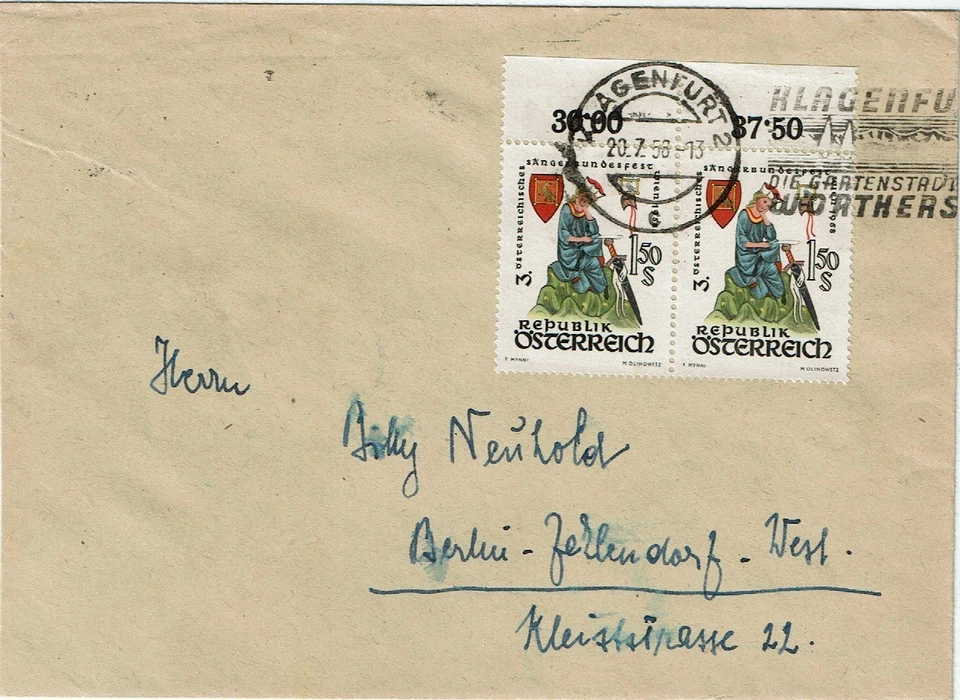 30·00
37·50
KLAGENFURT 2
20.7.58-13
KLAGENFU
DIE GARTENSTADT
WÖRTHERS
3. ÖSTERREICHISCHES SÄNGERBUNDESFEST WIEN 1958
150
S
REPUBLIK
ÖSTERREICH
F. MYNNI M. OLINOWETZ
3. ÖSTERREICHISCHES SÄNGERBUNDESFEST WIEN 1958
150
S
REPUBLIK
ÖSTERREICH
F. MYNNI M. OLINOWETZ
Herrn
Neuhold
Berlin - Zehlendorf - West.
Kleiststrasse 22.